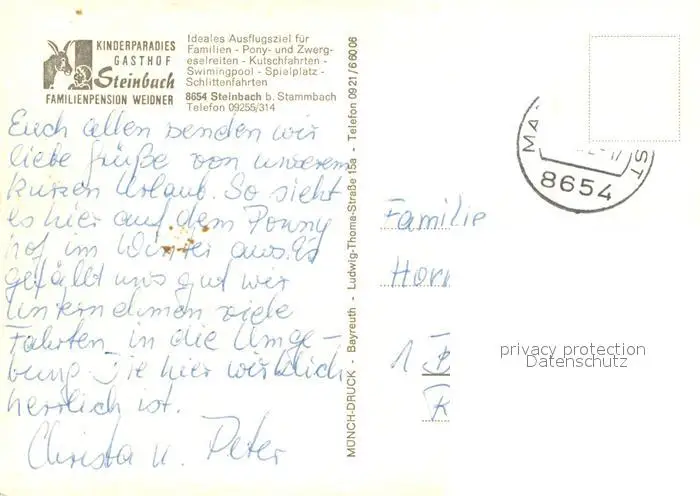 KINDERPARADIES
GASTHOF
Steinbach
FAMILIENPENSION WEIDNER
Ideales Ausflugsziel für
Familien - Pony- und Zwerg-
eselreiten - Kutschfahrten -
Swimingpool - Spielplatz -
Schlittenfahrten
8654 Steinbach b. Stammbach
Telefon 09255/314
Euch allen senden wir
liebe grüße von unserem
kurzen Urlaub. So sieht
es hier auf dem Ponny
hof im Winter aus. Es
gefällt uns gut wir
unternehmen viele
Fahrten in die Umge-
bung die hier wirklich
herrlich ist.
Christa u. Peter
MÜNCH-DRUCK - Bayreuth - Ludwig-Thoma-Straße 15a - Telefon 0921/66006
MA
ST
8654
Familie
Horn
1 B
R
privacy protection
Datenschutz